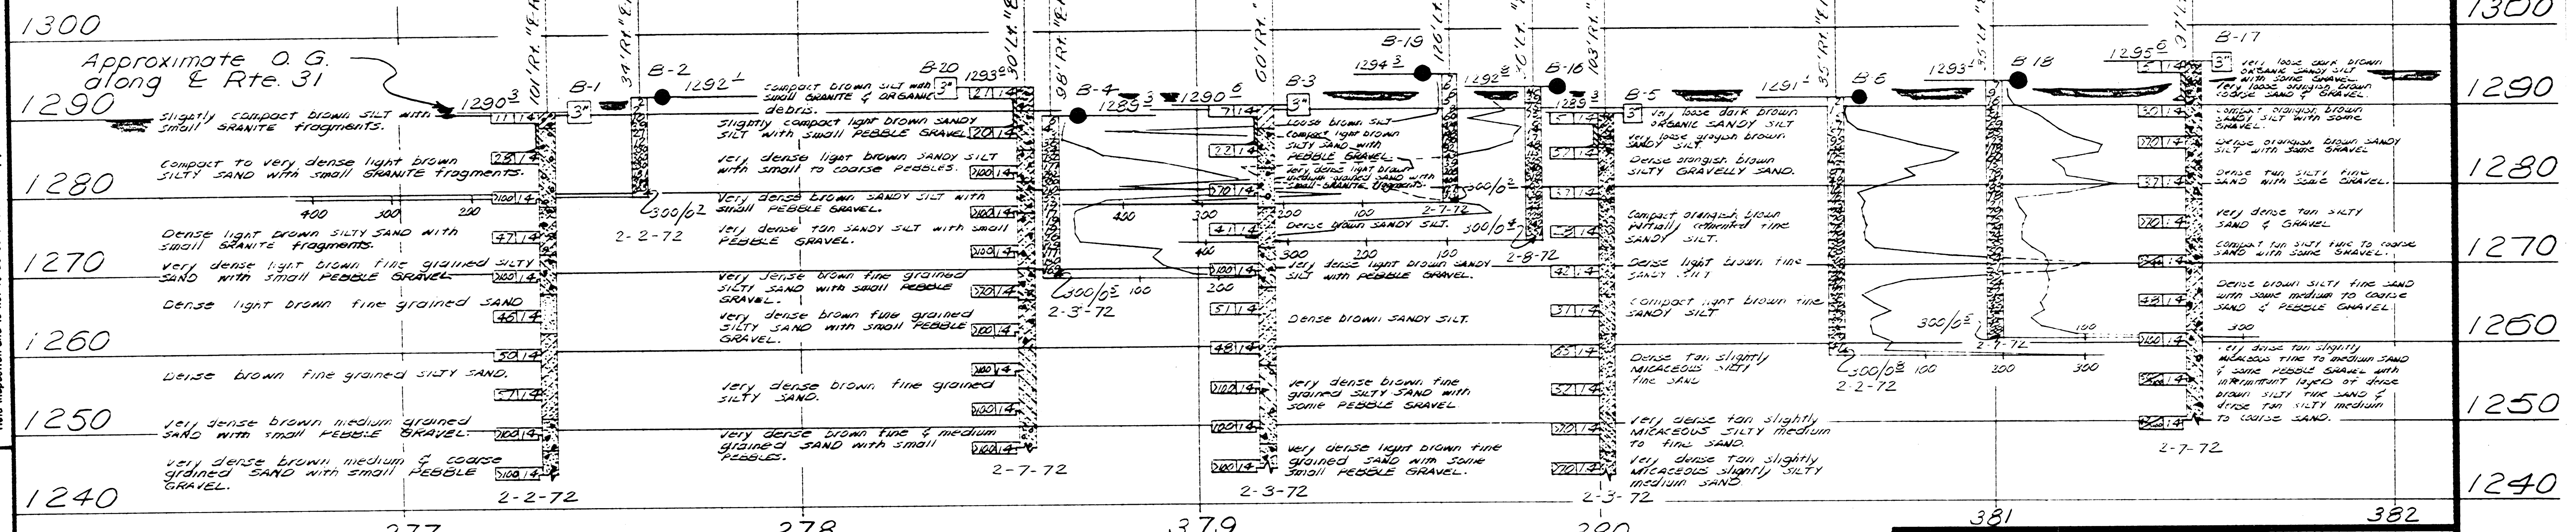 1300
1300
Approximate O. G.
along ℄ Rte. 31
1290
1290
1280
1280
1270
1270
1260
1260
1250
1250
1240
1240
B-1
3"
1290.3
101' Rt.
11 14
28 14
>100 14
47 14
>100 14
46 14
50 14
57 14
>100 14
>100 14
2-2-72
slightly compact brown SILT with
small GRANITE fragments.
Compact to very dense light brown
SILTY SAND with small GRANITE fragments.
400 300 200
Dense light brown SILTY SAND with
small GRANITE fragments.
very dense light brown fine grained SILTY
SAND with small PEBBLE GRAVEL
Dense light brown fine grained SAND
Dense brown fine grained SILTY SAND.
very dense brown medium grained
SAND with small PEBBLE GRAVEL.
very dense brown medium & coarse
grained SAND with small PEBBLE
GRAVEL.
34' Rt.
B-2
1292.1
300/0.2
2-2-72
B-20
3"
1293
30' Lt.
21 14
20 14
>100 14
>100 14
>100 14
>70 14
>100 14
>100 14
>100 14
>100 14
2-7-72
compact brown SILT with
small GRANITE & ORGANIC
debris.
Slightly compact light brown SANDY
SILT with small PEBBLE GRAVEL
very dense light brown SANDY SILT
with small to coarse PEBBLES.
Very dense brown SANDY SILT with
small PEBBLE GRAVEL.
very dense tan SANDY SILT with small
PEBBLE GRAVEL.
very dense brown fine grained
SILTY SAND with small PEBBLE
GRAVEL.
very dense brown fine grained
SILTY SAND with small PEBBLE
GRAVEL.
very dense brown fine grained
SILTY SAND.
very dense brown fine & medium
grained SAND with small
PEBBLES.
98' Rt.
B-4
1289.3
300/0.5 100 200
2-3-72
B-3
3"
1290.6
60' Rt.
7 14
22 14
>70 14
41 14
>100 14
51 14
48 14
>100 14
>100 14
>100 14
2-3-72
Loose brown SILT
compact light brown
SILTY SAND with
PEBBLE GRAVEL
very dense light brown
medium grained SAND with
small GRANITE fragments.
400 300 200 100
Dense brown SANDY SILT.
400 300 200 100
very dense light brown SANDY
SILT with PEBBLE GRAVEL.
Dense brown SANDY SILT.
very dense brown fine
grained SILTY SAND with
some PEBBLE GRAVEL
very dense light brown fine
grained SAND with some
small PEBBLE GRAVEL.
B-19
1294.3
126' Lt.
300/0.2
2-7-72
B-16
1292.8
300/0.4
2-8-72
103' Rt.
B-5
3"
1289.3
5 14
37 14
42 14
37 14
65 14
>70 14
>70 14
2-3-72
Very loose dark brown
ORGANIC SANDY SILT
very loose grayish brown
SANDY SILT.
Dense orangish brown
SILTY GRAVELLY SAND.
Compact orangish brown
partially cemented fine
SANDY SILT.
Dense light brown fine
SANDY SILT
Compact light brown fine
SANDY SILT
Dense tan slightly
MICACEOUS SILTY
fine SAND
very dense tan slightly
MICACEOUS SILTY medium
to fine SAND.
very dense tan slightly
MICACEOUS slightly SILTY
medium SAND
35' Rt.
B-6
1291.1
100 200 300
2-2-72
B-18
1293
35' Lt.
300/0.5
100
2-7-72
B-17
3"
1295.6
37' Lt.
5 14
30 14
>70 14
37 14
>70 14
48 14
2-7-72
very loose dark brown
ORGANIC SANDY SILT
with some GRAVEL
very loose orangish brown
COARSE SAND & GRAVEL
compact orangish brown
SANDY SILT with some
GRAVEL.
Dense orangish brown SANDY
SILT with some GRAVEL
Dense tan SILTY fine
SAND with some GRAVEL.
very dense tan SILTY
SAND & GRAVEL
Compact tan SILTY fine to coarse
SAND with some GRAVEL.
Dense brown SILTY fine SAND
with some medium to coarse
SAND & PEBBLE GRAVEL
300
very dense tan slightly
MICACEOUS fine to medium SAND
& some PEBBLE GRAVEL with
intermittent layers of dense
brown SILTY fine SAND &
dense tan SILTY medium
to coarse SAND.
277 278 379 381 382